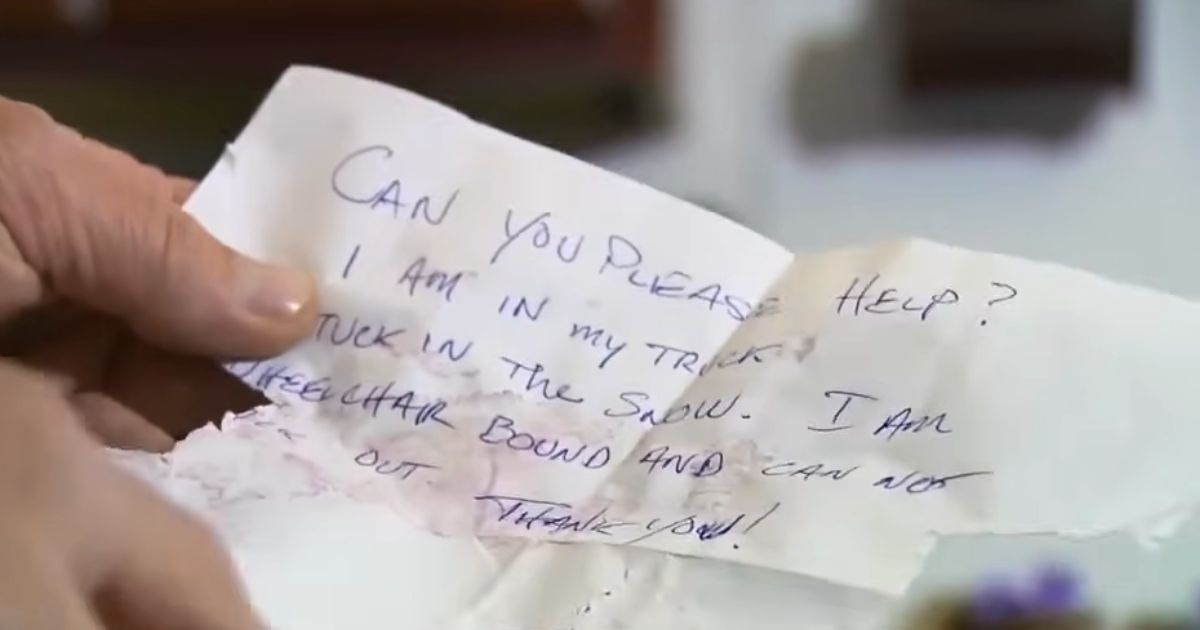 CAN YOU PLEASE HELP?
I AM IN my TRUCK
TUCK IN The SNOW. I AM
WHEELCHAIR BOUND AND CAN NOT
OUT.
THANK YOU!